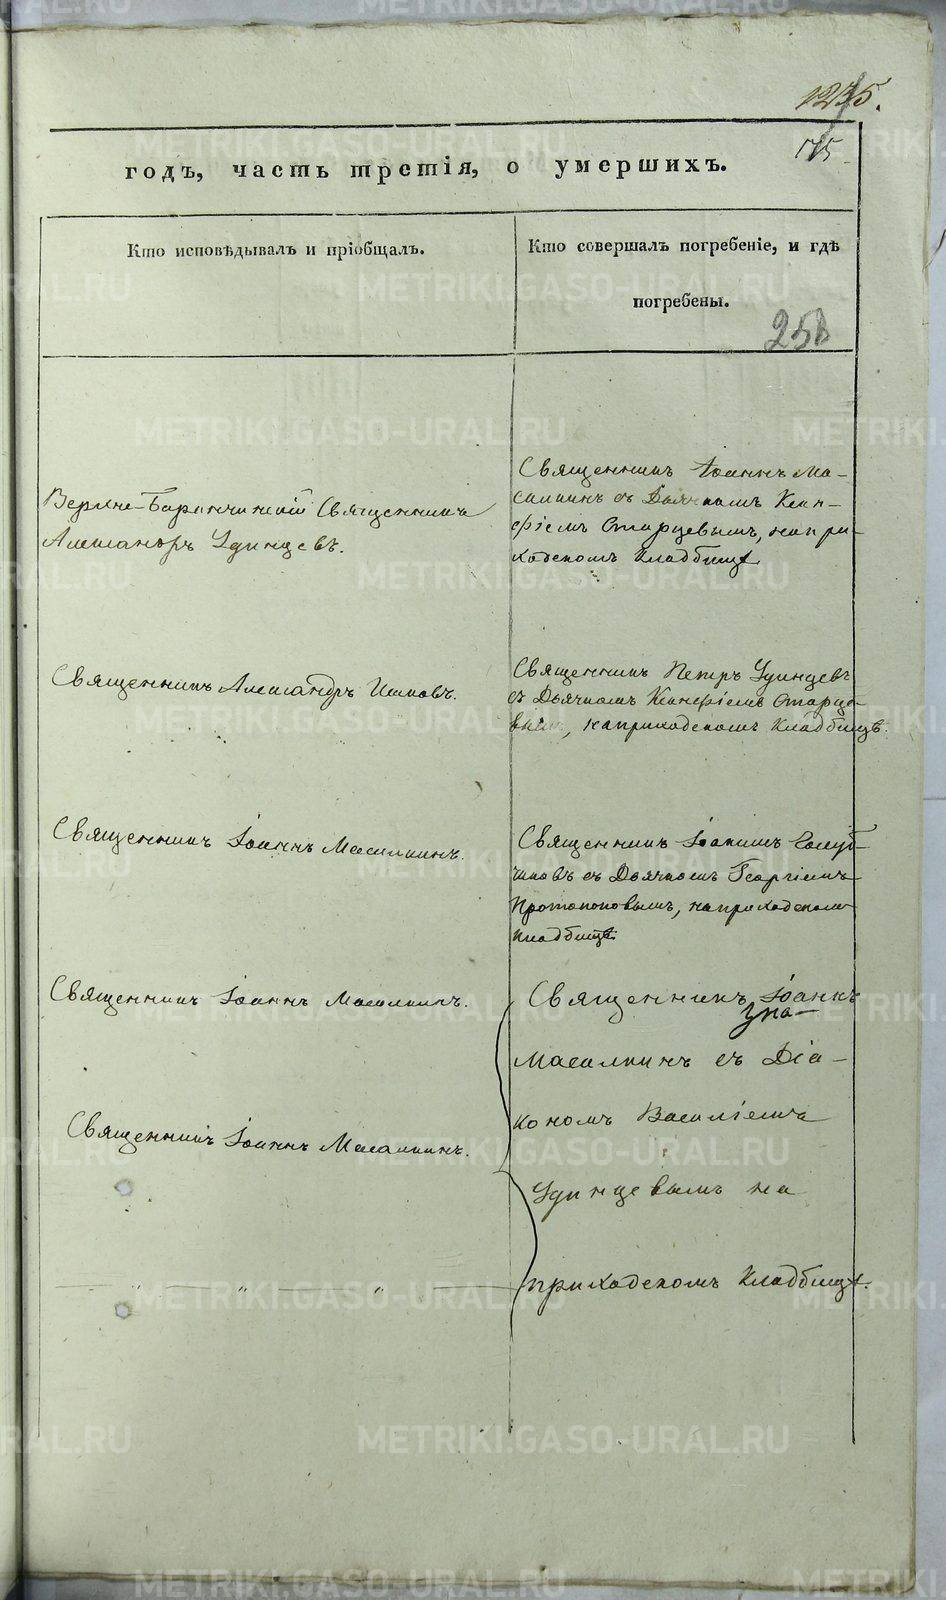 175
годъ, часть третія, о умершихъ.
Кто исповѣдывалъ и пріобщалъ.
Кто совершалъ погребеніе, и гдѣ
погребены.
Верхне-Баранчинскій Священникъ
Александръ Удинцевъ.
Священникъ Іоаннъ Ма-
салкинъ съ Дьячкомъ Ксен-
фіемъ Старцевымъ, на при-
ходскомъ Кладбищѣ
Священникъ Александръ
Священникъ Петръ Удинцевъ
съ Дьячкомъ Ксенфіемъ Старце-
вымъ, на приходскомъ Кладбищѣ.
Священникъ Іоаннъ Масалкинъ.
Священникъ Іоакимъ Голуб-
чиковъ съ Дьячкомъ Георгіемъ
Протопоповымъ, на приходскомъ
Кладбищѣ
Священникъ Іоаннъ Масалкинъ.
Священникъ Іоаннъ
Масалкинъ съ Діа-
кономъ Василіемъ
Удинцевымъ на
приходскомъ Кладбищѣ.
Священникъ Іоаннъ Масалкинъ.
METRIKI.GASO-URAL.RU